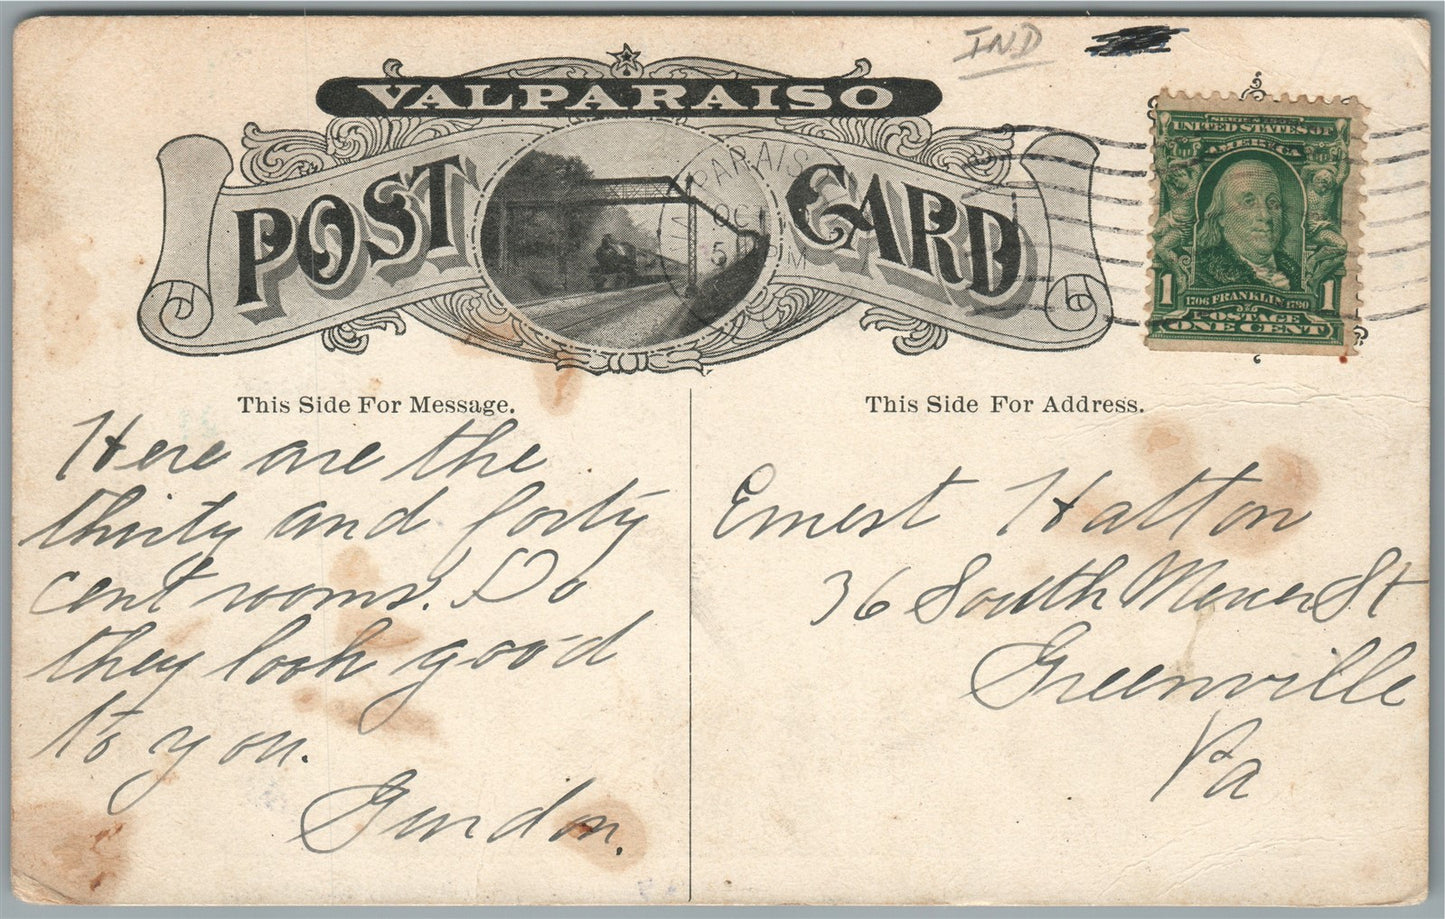 IND
VALPARAISO
POST CARD
VALPARAISO
OCT
5 PM
SERIES 1902
UNITED STATES OF
AMERICA
1 1706 FRANKLIN 1790 1
POSTAGE
ONE CENT
This Side For Message.
This Side For Address.
Here are the
thirty and forty
cent rooms. Do
they look good
to you.
Gordon.
Ernest Hatton
36 South Mercer St
Greenville
Pa